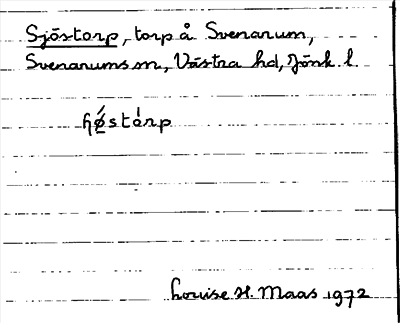 Sjöstorp, torp å Svenarum,
Svenarums sn, Västra hd, Jönk. l.
Louise H. Maas 1972